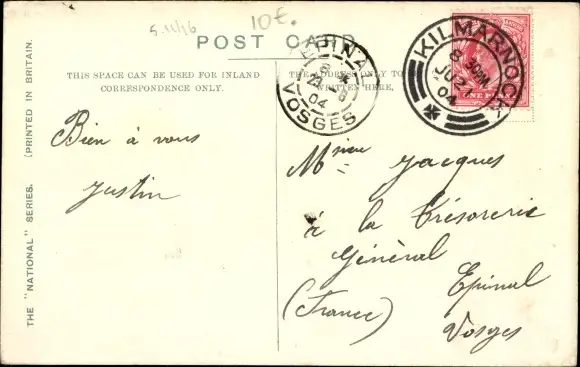 5.11/16
10€.
POST CARD
THIS SPACE CAN BE USED FOR INLAND
CORRESPONDENCE ONLY.
THE ADDRESS ONLY TO BE
WRITTEN HERE,
EPINAL
04
VOSGES
KILMARNOCK
8 30PM
JU 27
04
Bien à vous
Justin
Msieu Jacques
à la Trésorerie
Général
Epinal
(France)
Vosges
THE "NATIONAL" SERIES. [PRINTED IN BRITAIN.